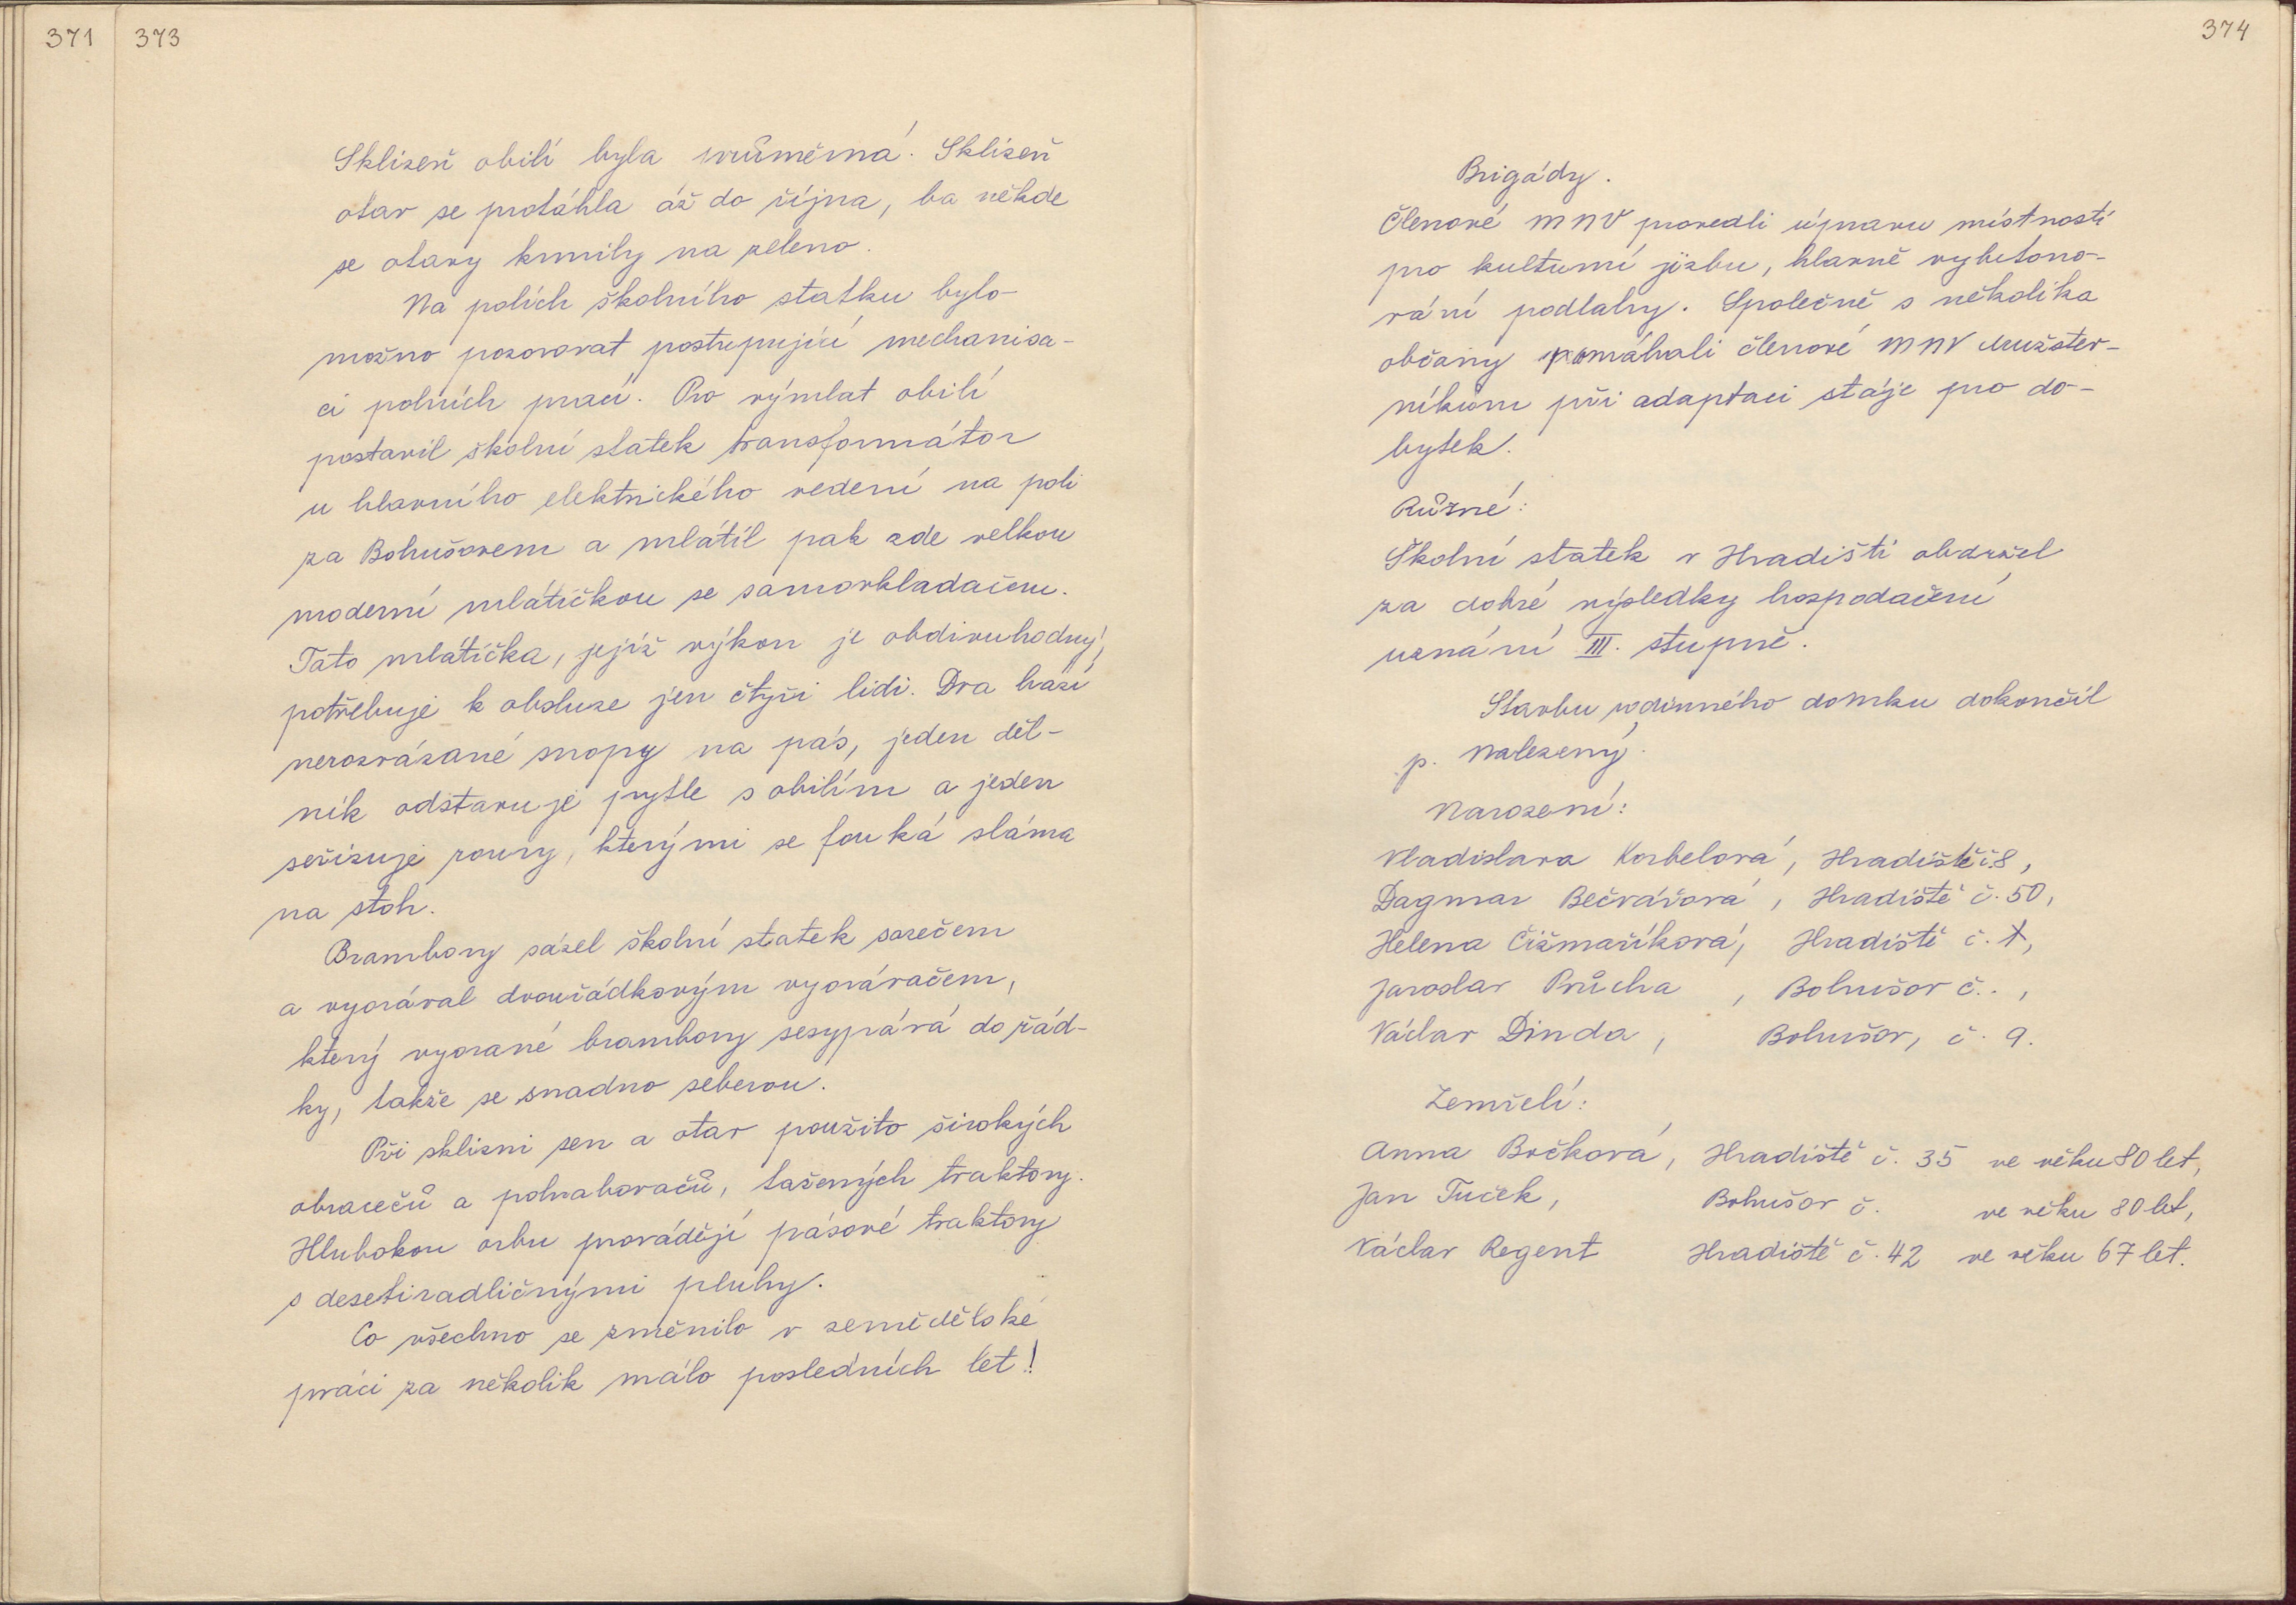 371
373
Sklizeň obilí byla průměrná. Sklizeň
otav se protáhla až do října, ba někde
se otavy krmily na zeleno.
Na polích školního statku bylo
možno pozorovat postupující mechanisa-
ci polních prací. Pro výmlat obilí
postavil školní statek transformátor
u hlavního elektrického vedení na poli
za Bohušovem a mlátil pak zde velkou
moderní mlátičkou se samovkladačem.
Tato mlátička, jejíž výkon je obdivuhodný,
potřebuje k obsluze jen čtyři lidi. Dva hází
nerozvázané snopy na pás, jeden děl-
ník odstavuje pytle s obilím a jeden
seřizuje roury, kterými se fouká sláma
na stoh.
Brambory sázel školní statek sazečem
a vyorával dvouřádkovým vyorávačem,
který vyorané brambory sesypává do řád-
ky, takže se snadno seberou.
Při sklizni sen a otav použito širokých
obracečů a pohrabovačů, tažených traktory.
Hlubokou orbu provádějí pásové traktory
s desetiradličnými pluhy.
Co všechno se změnilo v zemědělské
práci za několik málo posledních let!
374
Brigády.
Členové MNV provedli úpravu místností
pro kulturní jizbu, hlavně vybetono-
vání podlahy. Společně s několika
občany pomáhali členové MNV družstev-
níkům při adaptaci stáje pro do-
bytek.
Různé:
Školní statek v Hradišti obdržel
za dobré výsledky hospodaření
uznání III. stupně.
Stavbu rodinného domku dokončil
p. Nalezený.
Narození:
Vladislava Korbelová, Hradiště č. 8,
Dagmar Bečvářová, Hradiště č. 50,
Helena Čižmaříková, Hradiště č. 1,
Jaroslav Průcha, Bohušov č. ,
Václav Dinda, Bohušov, č. 9.
Zemřelí:
Anna Bočková, Hradiště č. 35 ve věku 80 let,
Jan Tuček, Bohušov č. ve věku 80 let,
Václav Regent Hradiště č. 42 ve věku 67 let.